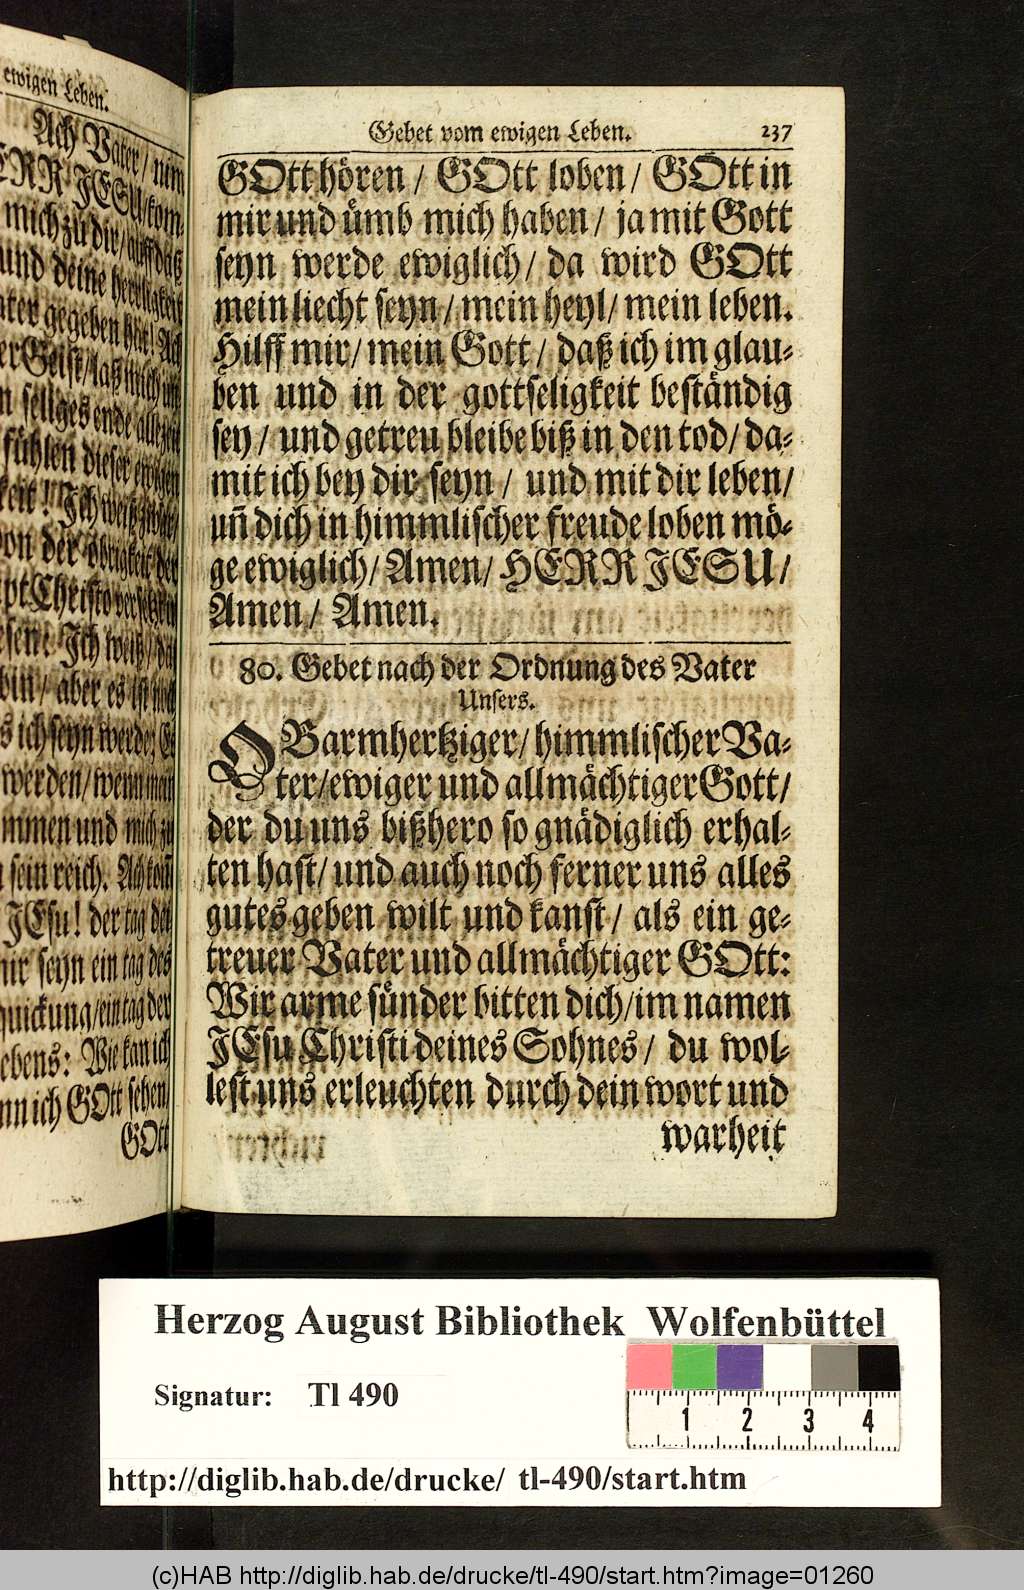 ewigen Leben.
Ach Vater / nim
ERR JESU / kom-
mich zu dir / auff daß
und deine herrligkeit
ater gegeben hat! Ach
er Geist / laß mich im
n seliges ende alle zeit
fühlen dieser ewigen
keit! Ich weiß zwar /
von der obrigkeit der
Ich weiß / daß
bin / aber es ist noch
s ich seyn werde; Es
werden / wenn mein
mmen und mich zu
n sein reich. Ach kom̃
JEsu! der tag der
mir seyn ein tag des
quickung / ein tag der
ebens: Wie kan ich
nn ich GOtt sehen /
GOtt
Gebet vom ewigen Leben. 237
GOtt hören / GOtt loben / GOtt in
mir und ümb mich haben / ja mit Gott
seyn werde ewiglich / da wird GOtt
mein liecht seyn / mein heyl / mein leben.
Hilff mir / mein Gott / daß ich im glau-
ben und in der gottseligkeit beständig
sey / und getreu bleibe biß in den tod / da-
mit ich bey dir seyn / und mit dir leben /
uñ dich in himmlischer freude loben mö-
ge ewiglich / Amen / HERR JESU /
Amen / Amen.
80. Gebet nach der Ordnung des Vater
Unsers.
O Barmhertziger / himmlischer Va-
ter / ewiger und allmächtiger Gott /
der du uns bißhero so gnädiglich erhal-
ten hast / und auch noch ferner uns alles
gutes geben wilt und kanst / als ein ge-
treuer Vater und allmächtiger GOtt:
Wir arme sünder bitten dich / im namen
JEsu Christi deines Sohnes / du wol-
lest uns erleuchten durch dein wort und
warheit
Herzog August Bibliothek Wolfenbüttel
Signatur: Tl 490
1 2 3 4
http://diglib.hab.de/drucke/ tl-490/start.htm
(c)HAB http://diglib.hab.de/drucke/tl-490/start.htm?image=01260